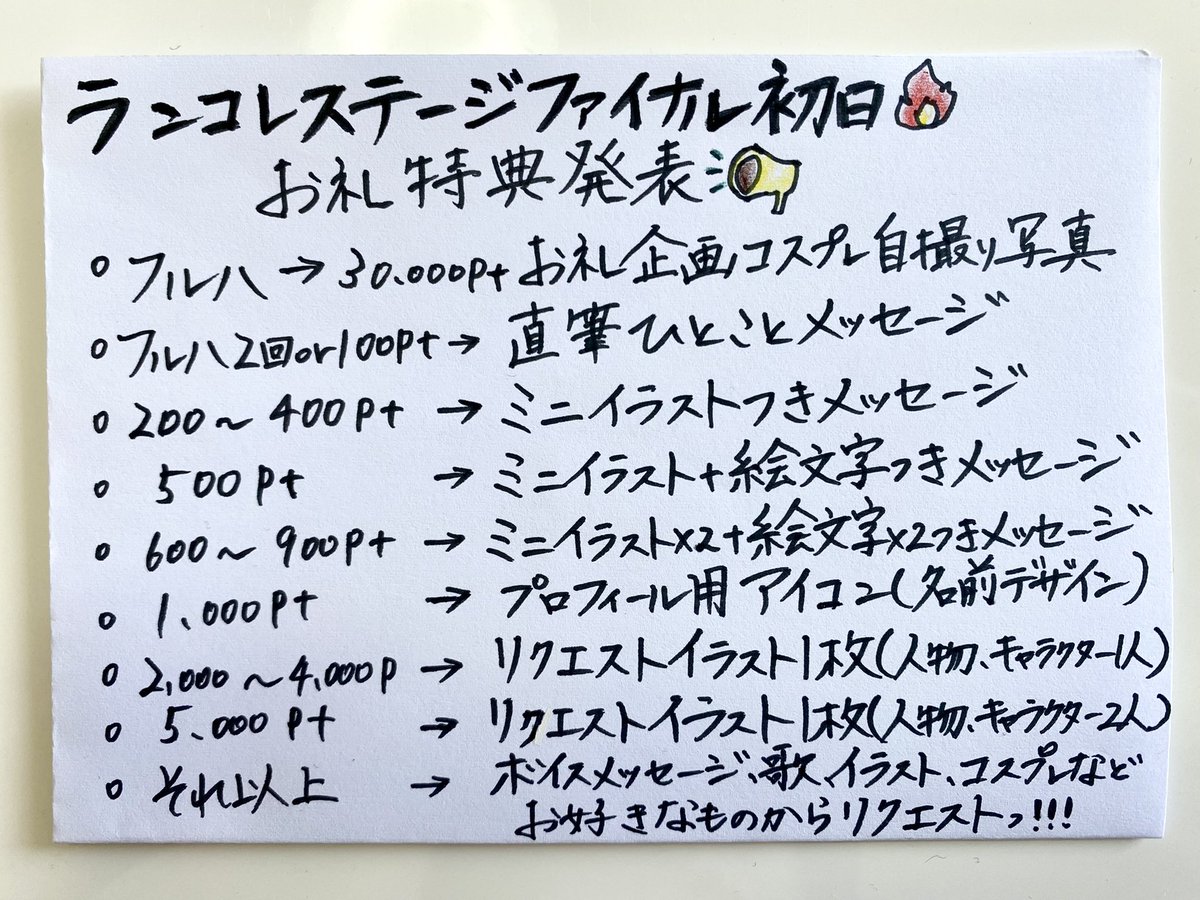 ランコレステージファイナル初日
お礼特典発表
フルハ→30.000Ptお礼企画コスプレ自撮り写真
フルハ2回or100Pt→直筆ひとことメッセージ
200～400Pt→ミニイラストつきメッセージ
500Pt→ミニイラスト+絵文字つきメッセージ
600～900Pt→ミニイラスト×2+絵文字×2つきメッセージ
1.000Pt→プロフィール用アイコン(名前デザイン)
2,000～4,000P→リクエストイラスト1枚(人物、キャラクター1人)
5.000Pt→リクエストイラスト1枚(人物、キャラクター2人)
それ以上→ボイスメッセージ、歌、イラスト、コスプレなど
お好きなものからリクエストっ!!!